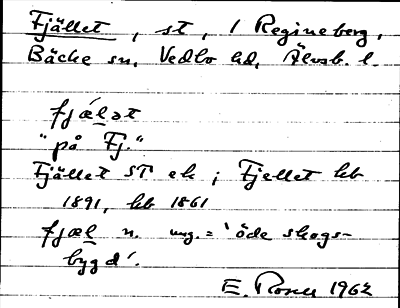 Fjället, st, / Regineberg,
Bäcke sn, Vedbo hd, Älvsb. l.
fjǽlət
"på Fj."
Fjället ST ek ; Fjellet hb
1891, hb 1861
fjæl n. ung. = 'öde skogs-
bygd'.
E. Rosell 1962